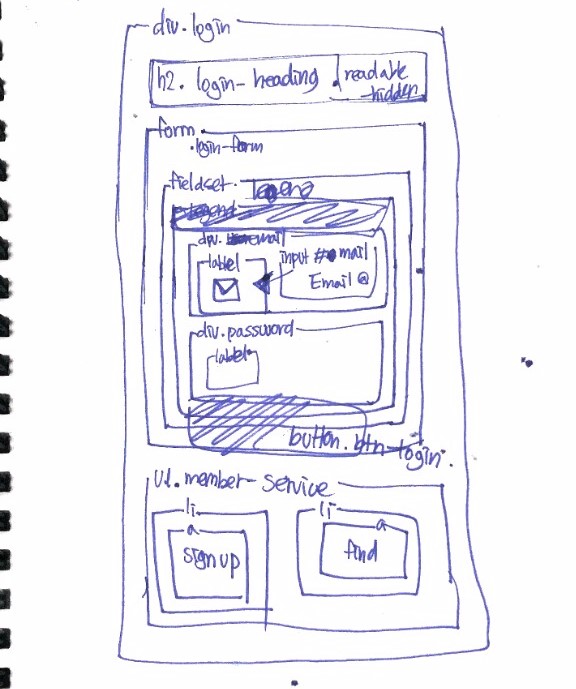 div.login
h2. login-heading . readable
-hidden
form.
.login-form
fieldset.
legend
legend
div. email
label
input #email
Email @
div.password
label
button.btn-login.
ul.member-service
li
a
sign up
li
a
find